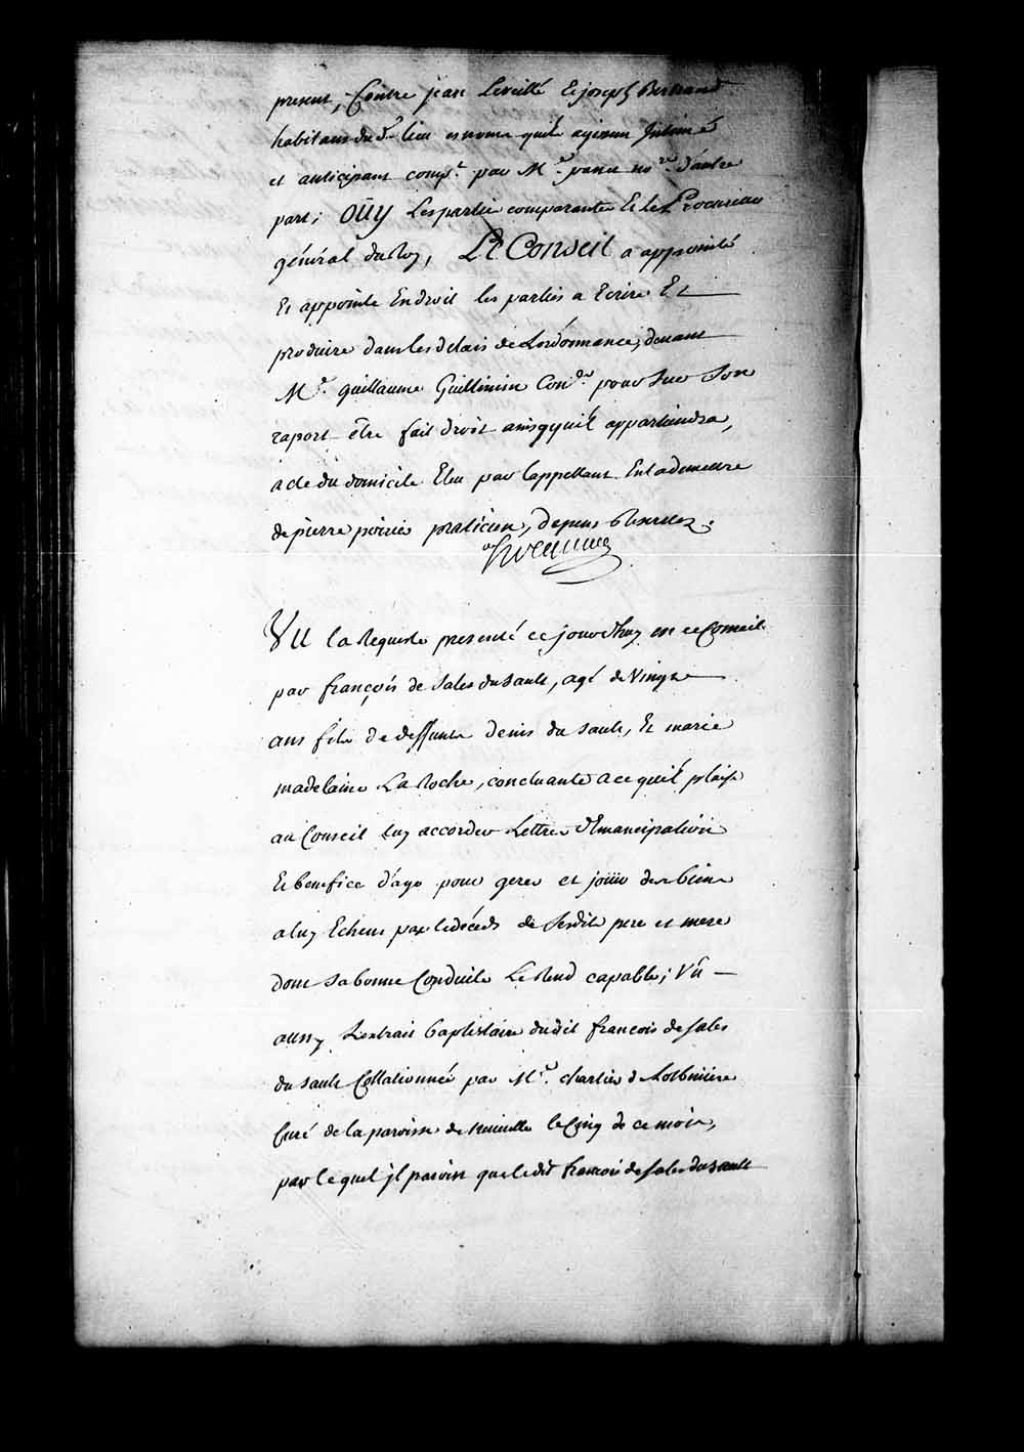 present, Contre jean Leveillé & joseph Bertrand
habitans du d. lieu es noms quils agissent Intimés
et anticipans comp.t par M.e panet no.re d'autre
part; OÜY Les parties comparantes Et le Procureur
général du Roy, LE Conseil a appointé
Et appointe En droit les parties a Ecrire Et
produire dans les delais de Lordonnance, devant
M.e guillaume Guillimin Con.er pour sur Son
raport être fait droit ainsy quil appartiendra,
acte du domicile Eleu par lappellant En la demeure
de pierre poirier praticien, depens Reservez.

VU la Requeste presenté ce jourdhuy en ce Conseil
par françois de Sales du Sault, agé de Vingt
ans fils de deffunts denis du Sault, Et marie
madelaine La Roche, concluante a ce quil plaise
au Conseil luy accorder Lettres d'Emancipation
Et benefice d'age pour gerer et jouir des biens
a luy Echeus par le déceds de Sesdits pere et mere
dont sa bonne Conduite Le Rend capable; Vû
aussy Lextrait baptistaire dudit francois de Sales
du Sault Collationné par M.re chartier de Lotbiniere
Curé de la paroisse de le Cinq de ce mois,
par lequel jl paroist que ledit francois de Sales du Sault